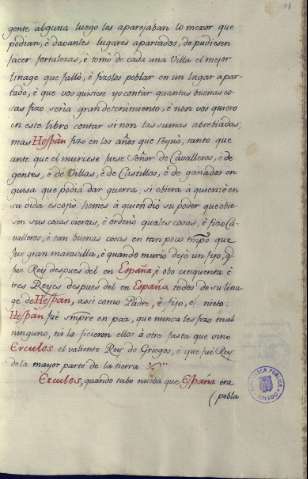 gente alguna luego las aparejaban lo mejor que
podian, è dacantes lugares apartados, do pudiesen
facer fortalezas, è tomò de cada una Villa el mejor
linage que fallò, è fizolos poblar en un lugar apar-
tado, è que vos quisiese yo contar quantas buenas co-
sas fizo seria gran detenimiento, è non vos quiero
en este libro contar si non las sumas abrebiadas,
mas Hespan fizo en los años que Reynò, tanto que
ante que el muriese fuese Señor de Cavalleros, è de
gentes, è de Villas, è de Castillos, è de ganados en
guisa que podia dar guerra, si obiera à quien è en
su vida escogiò homes à quien diò su poder que obie-
sen sus cosas ciertas, è ordenò quales cosas, è fizo Ca-
valleros, è tan buenas cosas en tan poco tiempo que
fue gran maravilla, è quando muriò dejò un fijo, q
fue Rey despues del en España è obo cinquenta è
tres Reyes despues del en España todos de su lina-
ge de Hespan, assi como Padre, è fijo, è nieto:
Hespan fuè siempre en paz, que nunca les fizo mal
ninguno, nin la ficieron ellos à otro fasta que vino
Ercules el valiente Rey de Griegos, è que fuè Rey
de la mayor parte de la tierra
Ercules, quando tubo nueba que España era
(pobla